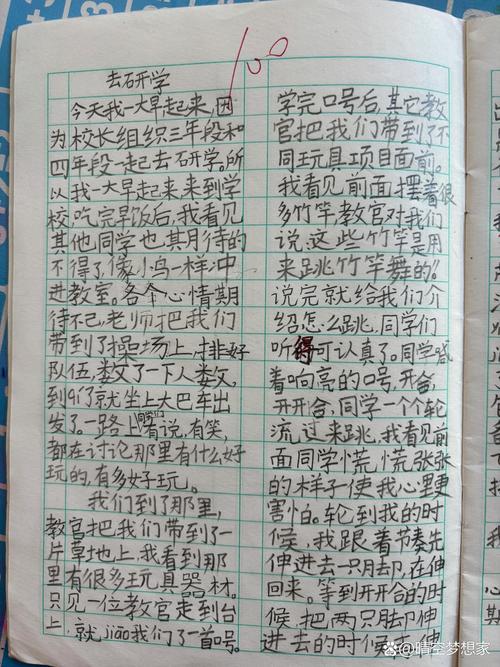 100
去石开学
今天我一大早起来,因
为校长组织三年段和
四年段一起去石开学。所
以我一大早起来来到学
校,吃完早饭后,我看见
其他同学也其月待的
不得了,像小鸟一样冲
进教室。各个心情期
待不已,老师把我们
带到了操场上,排好
队伍,数了一下人数,
到9们就坐上大巴车出
发了。一路上有说,有笑,
都在讨论那里有什么好
玩的,有多好玩。
我们到了那里,
教官把我们带到了一
片草地上,我看到那
里有很多玩具器材。
只见一位教官走到台
上,就jiāo我们了一首号。
学完口号后,其它教
官把我们带到了不
同玩具项目面前。
我看见前面摆着很
多竹竿教官对我们
说,这些竹竿是用
来跳竹竿舞的。“
说完就给我们介
绍怎么跳,同学们
听得可认真了。同学喊
着响亮的口号,开合,
开开合,同学一个个轮
流,过来跳,我看见前
面同学慌慌张张
的样子使我心里更
害怕。轮到我的时
候,我跟着节奏先
伸进去一只脚,在伸
回来。等到开开合的时
候,把两只脚伸
进去的时候
@晴空梦想家